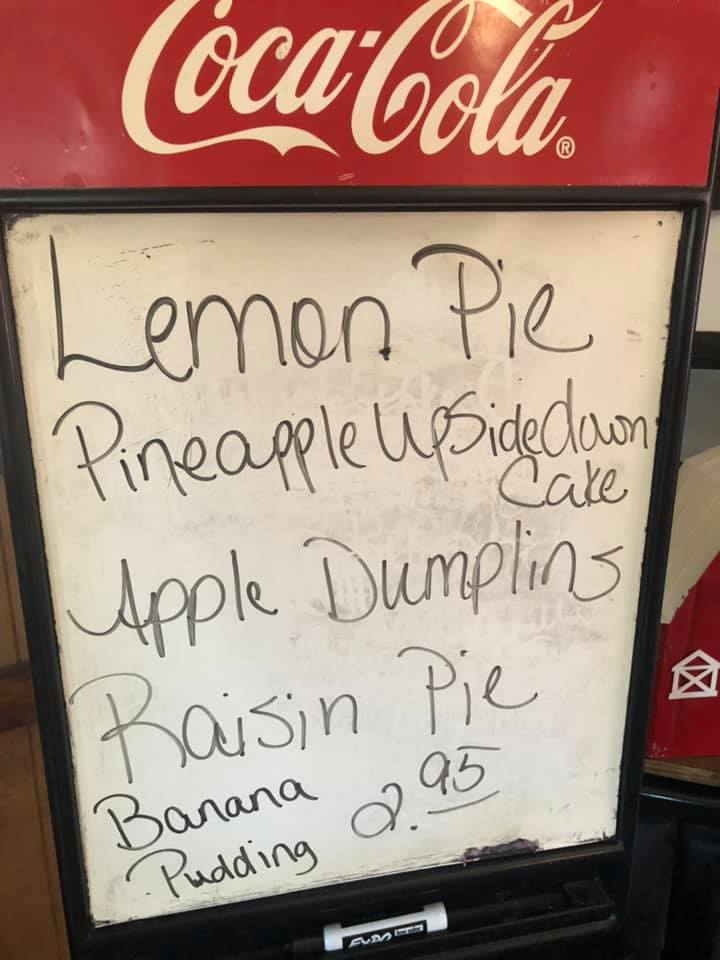 Coca-Cola®
Lemon Pie
Pineapple UpSidedown
Cake
Apple Dumplins
Raisin Pie
Banana 2.95
Pudding
EXPO